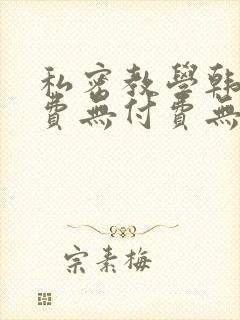 私密教學韩
費無付費無
宗素梅